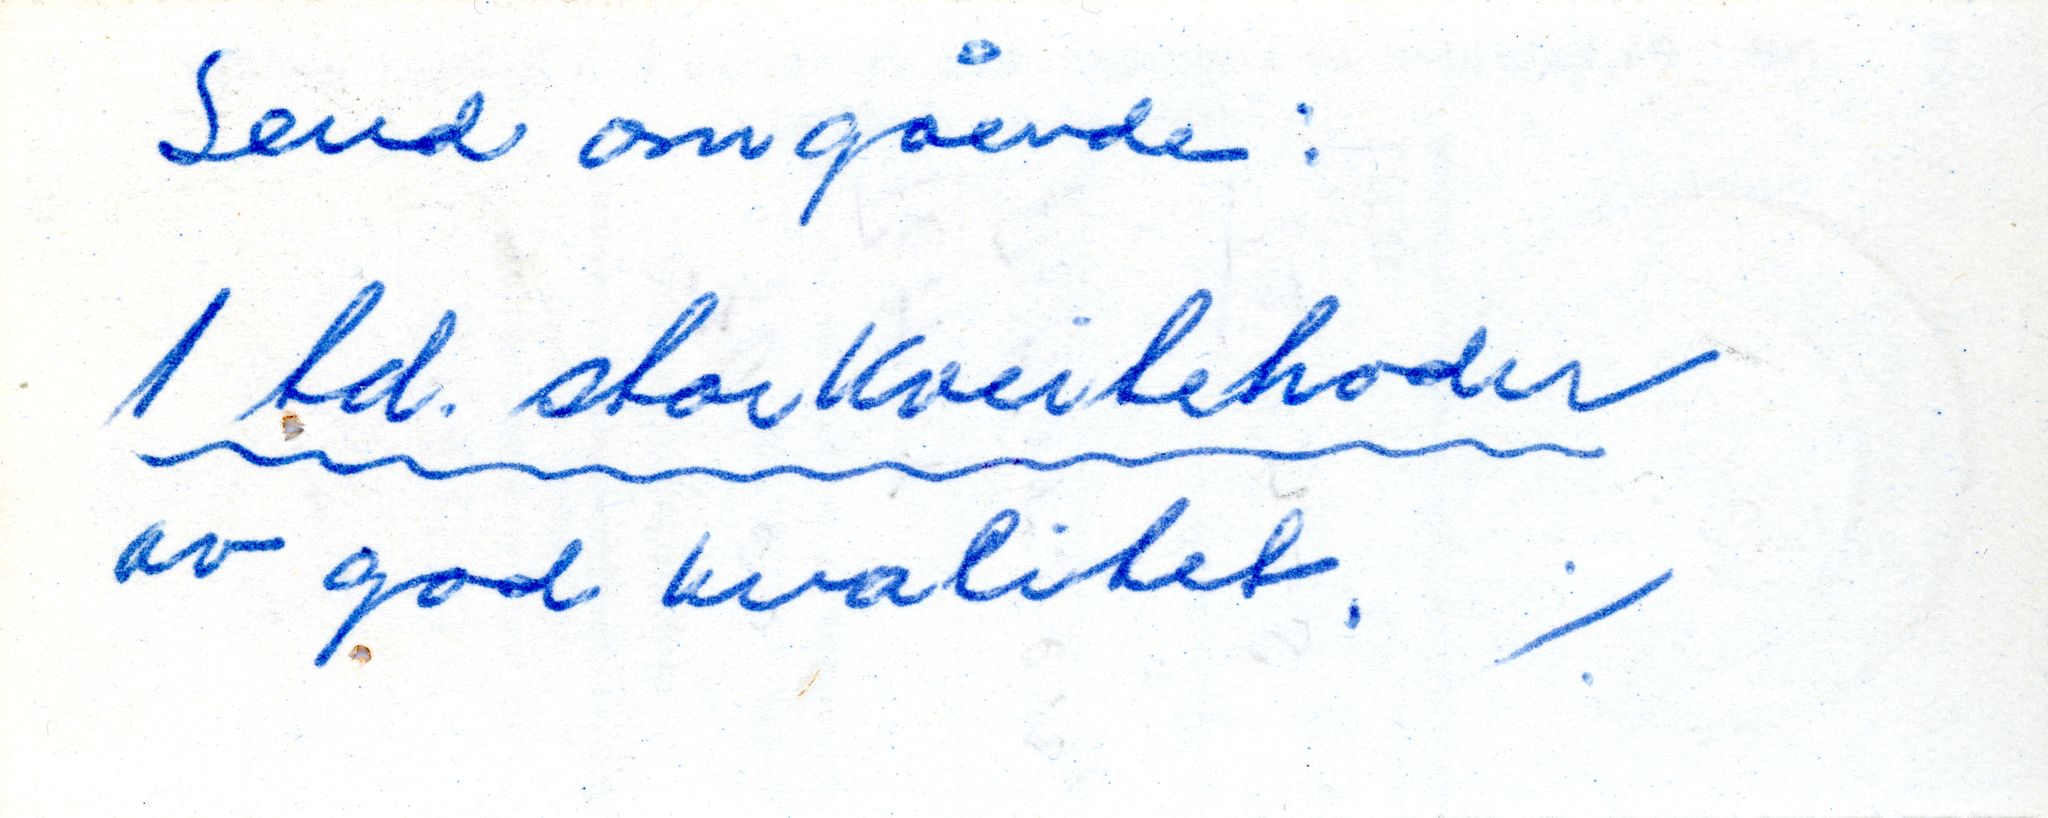 Send omgående:
1 td. storkveitehoder
av god kvalitet.